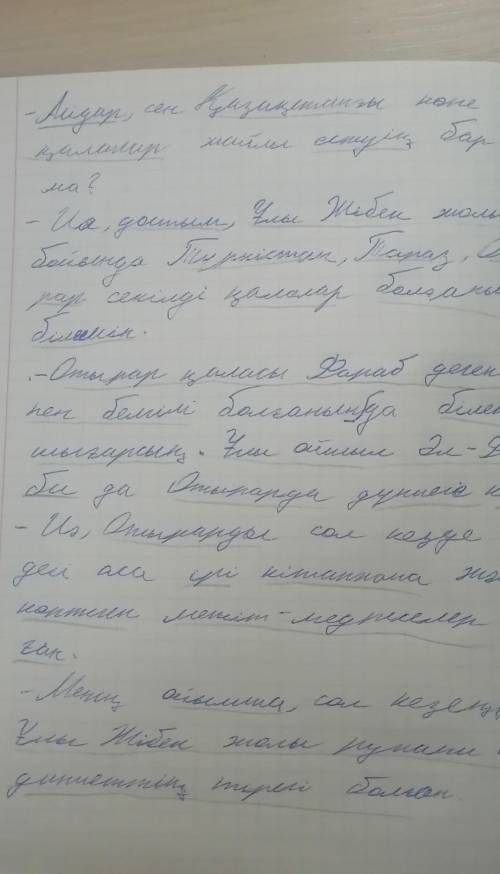 - Айдар, сен Қазақстанғы көне
қалалар жайлы естуің бар
ма?
- Иә, достым, Ұлы Жібек жолы
бойында Түркістан, Тараз, О
рар секілді қалалар болғаны
білемін.
- Отырар қаласы Фараб деген
пен белгілі болғанын да білен
шығарсың. Ұлы ойшыл Әл-Ф
би да Отырарда дүниеге к
- Иә, Отырарды сол кезде
дей аса ірі кітапхана жә
көптеген мешіт-медреселер
ған.
- Менің ойымша, сол кезең
Ұлы Жібек жолы рухани
дипнеттің тірегі болған.